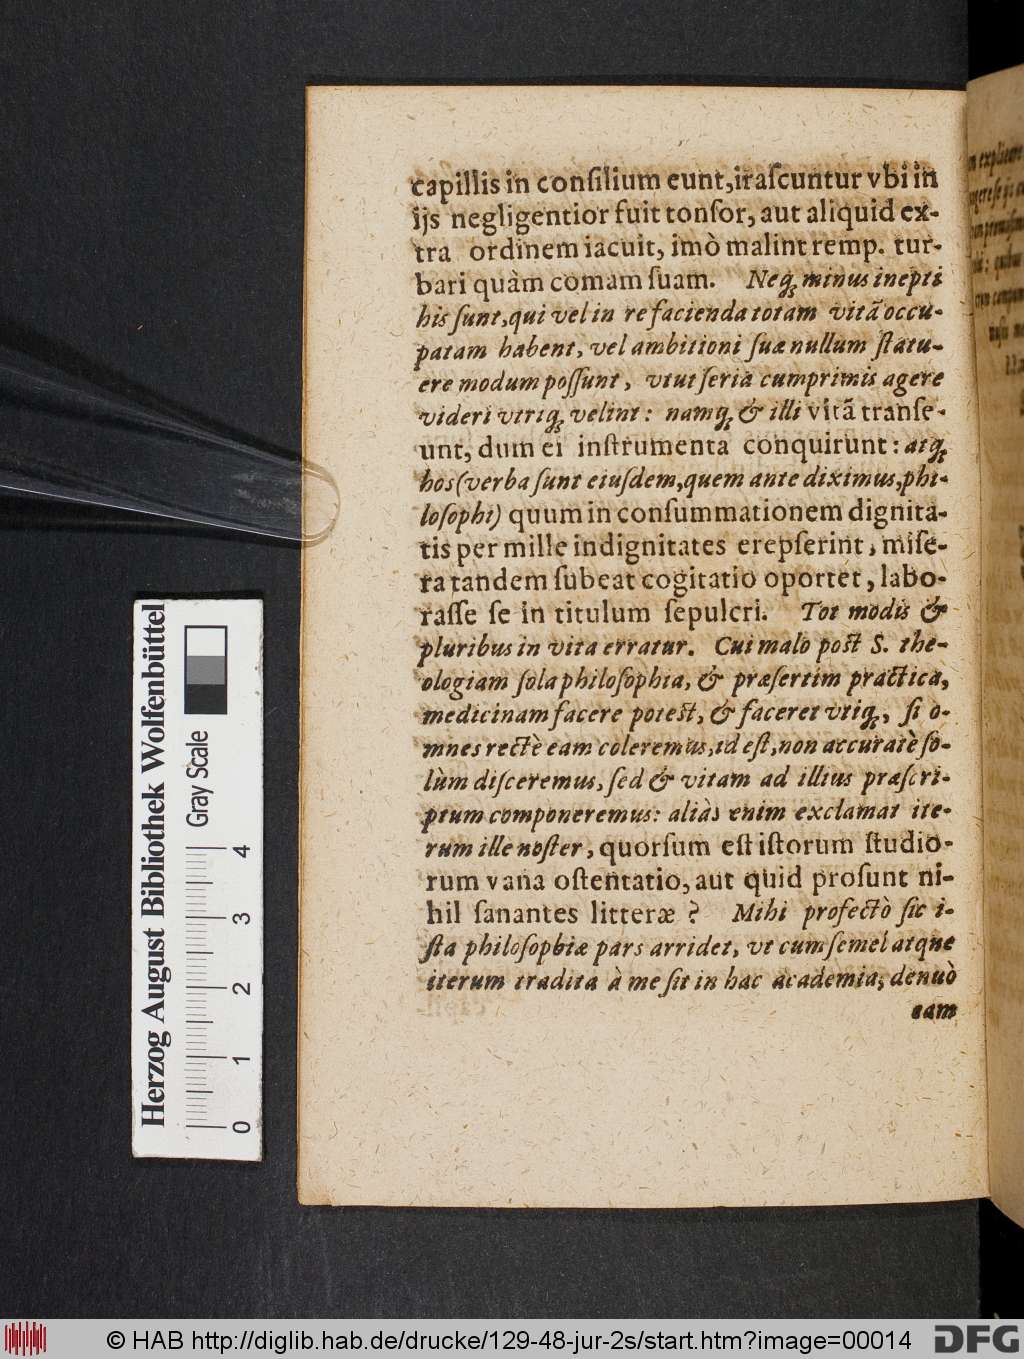 capillis in conſilium eunt, iraſcuntur vbi in
ijs negligentior fuit tonſor, aut aliquid ex-
tra ordinem iacuit, imò malint remp. tur-
bari quàm comam ſuam. Neqꝫ minus inepti
his ſunt, qui vel in re facienda totam vitã occu-
patam habent, vel ambitioni ſuæ nullum ſtatu-
ere modum poſſunt, vtut ſeria cumprimis agere
videri vtriqꝫ velint: namqꝫ & illi vitã tranſe-
unt, dum ei inſtrumenta conquirunt: atqꝫ
hos (verba ſunt eiuſdem, quem ante diximus, phi-
loſophi) quum in conſummationem dignita-
tis per mille indignitates erepſerint, miſe-
ra tandem ſubeat cogitatio oportet, labo-
raſſe ſe in titulum ſepulcri. Tot modis &
pluribus in vita erratur. Cui malo poſt S. the-
ologiam ſola philoſophia, & præſertim practica,
medicinam facere poteſt, & faceret vtiqꝫ, ſi o-
mnes rectè eam coleremus, id eſt, non accuratè ſo-
lùm diſceremus, ſed & vitam ad illius præſcri-
ptum componeremus: aliàs enim exclamat ite-
rum ille noſter, quorſum eſt iſtorum ſtudio-
rum vana oſtentatio, aut quid proſunt ni-
hil ſanantes litteræ? Mihi profectò ſic i-
ſta philoſophiæ pars arridet, vt cum ſemel atque
iterum tradita à me ſit in hac academia, denuò
eam
Herzog August Bibliothek Wolfenbüttel
Gray Scale
0 1 2 3 4
© HAB http://diglib.hab.de/drucke/129-48-jur-2s/start.htm?image=00014
DFG